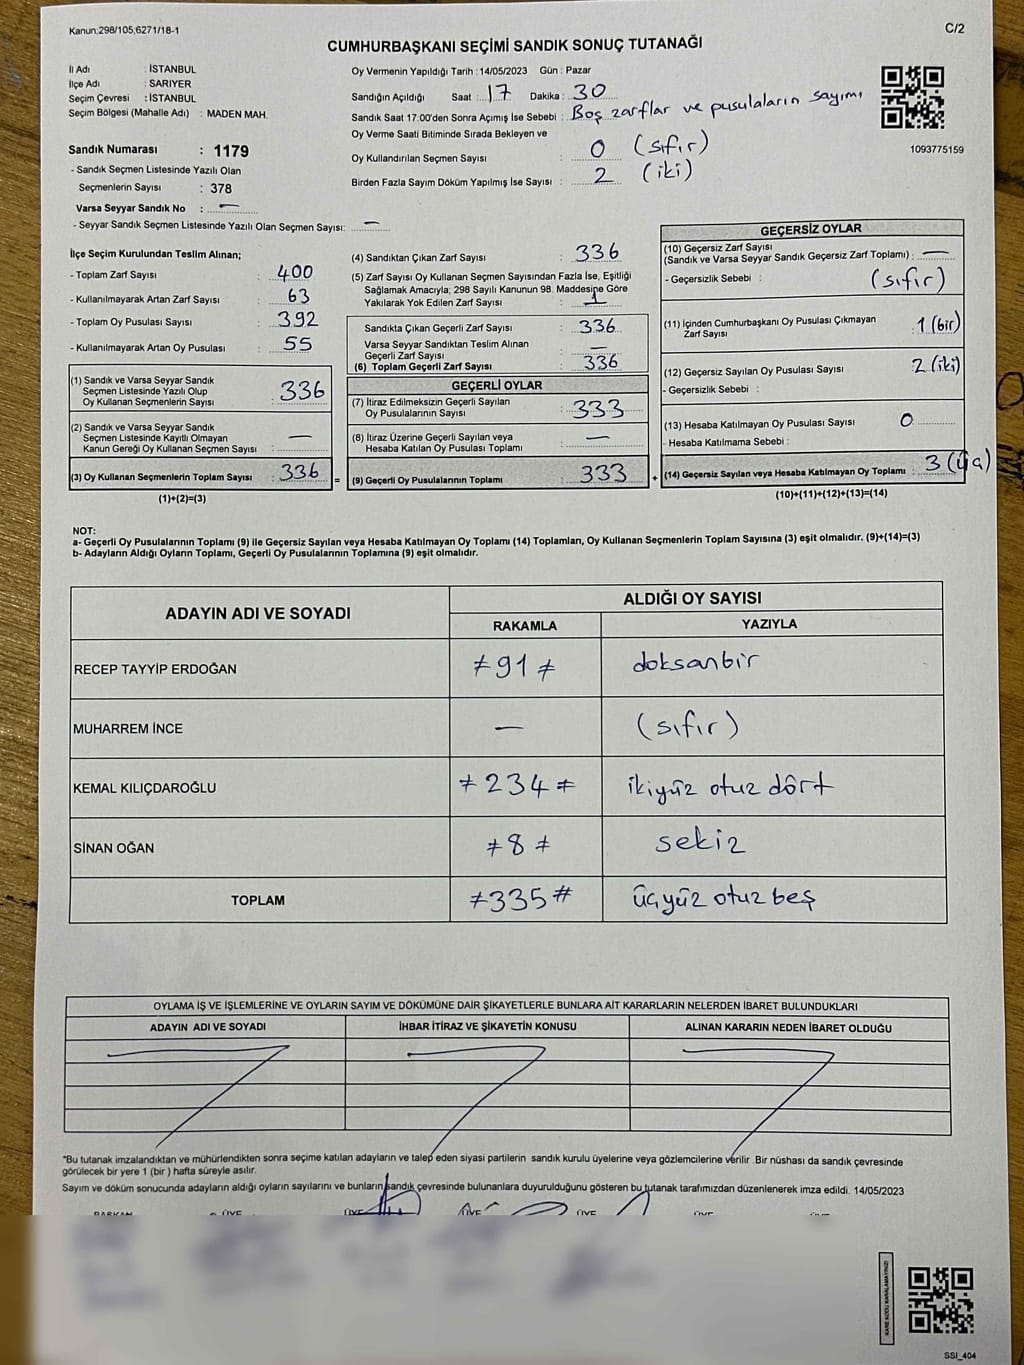 Kanun,298/105;6271/18-1
C/2
CUMHURBAŞKANI SEÇİMİ SANDIK SONUÇ TUTANAĞI
İl Adı : İSTANBUL
İlçe Adı : SARIYER
Seçim Çevresi : İSTANBUL
Seçim Bölgesi (Mahalle Adı) : MADEN MAH.
Sandık Numarası : 1179
- Sandık Seçmen Listesinde Yazılı Olan
Seçmenlerin Sayısı : 378
Varsa Seyyar Sandık No : —
- Seyyar Sandık Seçmen Listesinde Yazılı Olan Seçmen Sayısı: —
Oy Vermenin Yapıldığı Tarih : 14/05/2023 Gün : Pazar
Sandığın Açıldığı Saat : 17 Dakika : 30
Sandık Saat 17:00'den Sonra Açımış İse Sebebi : Boş zarflar ve pusulaların sayımı
Oy Verme Saati Bitiminde Sırada Bekleyen ve
Oy Kullandırılan Seçmen Sayısı : 0 (sıfır)
Birden Fazla Sayım Döküm Yapılmış İse Sayısı : 2 (iki)
1093775159
İlçe Seçim Kurulundan Teslim Alınan;
- Toplam Zarf Sayısı : 400
- Kullanılmayarak Artan Zarf Sayısı : 63
- Toplam Oy Pusulası Sayısı : 392
- Kullanılmayarak Artan Oy Pusulası : 55
(1) Sandık ve Varsa Seyyar Sandık
Seçmen Listesinde Yazılı Olup
Oy Kullanan Seçmenlerin Sayısı : 336
(2) Sandık ve Varsa Seyyar Sandık
Seçmen Listesinde Kayıtlı Olmayan
Kanun Gereği Oy Kullanan Seçmen Sayısı : —
(3) Oy Kullanan Seçmenlerin Toplam Sayısı : 336
(1)+(2)=(3)
(4) Sandıktan Çıkan Zarf Sayısı : 336
(5) Zarf Sayısı Oy Kullanan Seçmen Sayısından Fazla İse, Eşitliği
Sağlamak Amacıyla; 298 Sayılı Kanunun 98. Maddesine Göre
Yakılarak Yok Edilen Zarf Sayısı : 1
Sandıkta Çıkan Geçerli Zarf Sayısı : 336
Varsa Seyyar Sandıktan Teslim Alınan
Geçerli Zarf Sayısı : —
(6) Toplam Geçerli Zarf Sayısı : 336
GEÇERLİ OYLAR
(7) İtiraz Edilmeksizin Geçerli Sayılan
Oy Pusulalarının Sayısı : 333
(8) İtiraz Üzerine Geçerli Sayılan veya
Hesaba Katılan Oy Pusulası Toplamı : —
= (9) Geçerli Oy Pusulalarının Toplamı : 333
GEÇERSİZ OYLAR
(10) Geçersiz Zarf Sayısı
(Sandık ve Varsa Seyyar Sandık Geçersiz Zarf Toplamı) : —
- Geçersizlik Sebebi : (sıfır)
(11) İçinden Cumhurbaşkanı Oy Pusulası Çıkmayan
Zarf Sayısı : 1 (bir)
(12) Geçersiz Sayılan Oy Pusulası Sayısı : 2 (iki)
- Geçersizlik Sebebi :
(13) Hesaba Katılmayan Oy Pusulası Sayısı : 0
- Hesaba Katılmama Sebebi :
+ (14) Geçersiz Sayılan veya Hesaba Katılmayan Oy Toplamı : 3
(10)+(11)+(12)+(13)=(14)
NOT:
a- Geçerli Oy Pusulalarının Toplamı (9) ile Geçersiz Sayılan veya Hesaba Katılmayan Oy Toplamı (14) Toplamları, Oy Kullanan Seçmenlerin Toplam Sayısına (3) eşit olmalıdır. (9)+(14)=(3)
b- Adayların Aldığı Oyların Toplamı, Geçerli Oy Pusulalarının Toplamına (9) eşit olmalıdır.
ADAYIN ADI VE SOYADI
ALDIĞI OY SAYISI
RAKAMLA YAZIYLA
RECEP TAYYİP ERDOĞAN ≠91≠ doksanbir
MUHARREM İNCE — (sıfır)
KEMAL KILIÇDAROĞLU ≠234≠ ikiyüz otuz dört
SİNAN OĞAN ≠8≠ sekiz
TOPLAM ≠335# üçyüz otuz beş
OYLAMA İŞ VE İŞLEMLERİNE VE OYLARIN SAYIM VE DÖKÜMÜNE DAİR ŞİKAYETLERLE BUNLARA AİT KARARLARIN NELERDEN İBARET BULUNDUKLARI
ADAYIN ADI VE SOYADI İHBAR İTİRAZ VE ŞİKAYETİN KONUSU ALINAN KARARIN NEDEN İBARET OLDUĞU
"Bu tutanak imzalandıktan ve mühürlendikten sonra seçime katılan adayların ve talep eden siyasi partilerin sandık kurulu üyelerine veya gözlemcilerine verilir .Bir nüshası da sandık çevresinde
görülecek bir yere 1 (bir ) hafta süreyle asılır.
Sayım ve döküm sonucunda adayların aldığı oyların sayılarını ve bunların sandık çevresinde bulunanlara duyurulduğunu gösteren bu tutanak tarafımızdan düzenlenerek imza edildi. 14/05/2023
BAŞKAN ÜYE ÜYE ÜYE ÜYE ÜYE ÜYE
KARE KODU KARALAMAYINIZ!
SSI_404